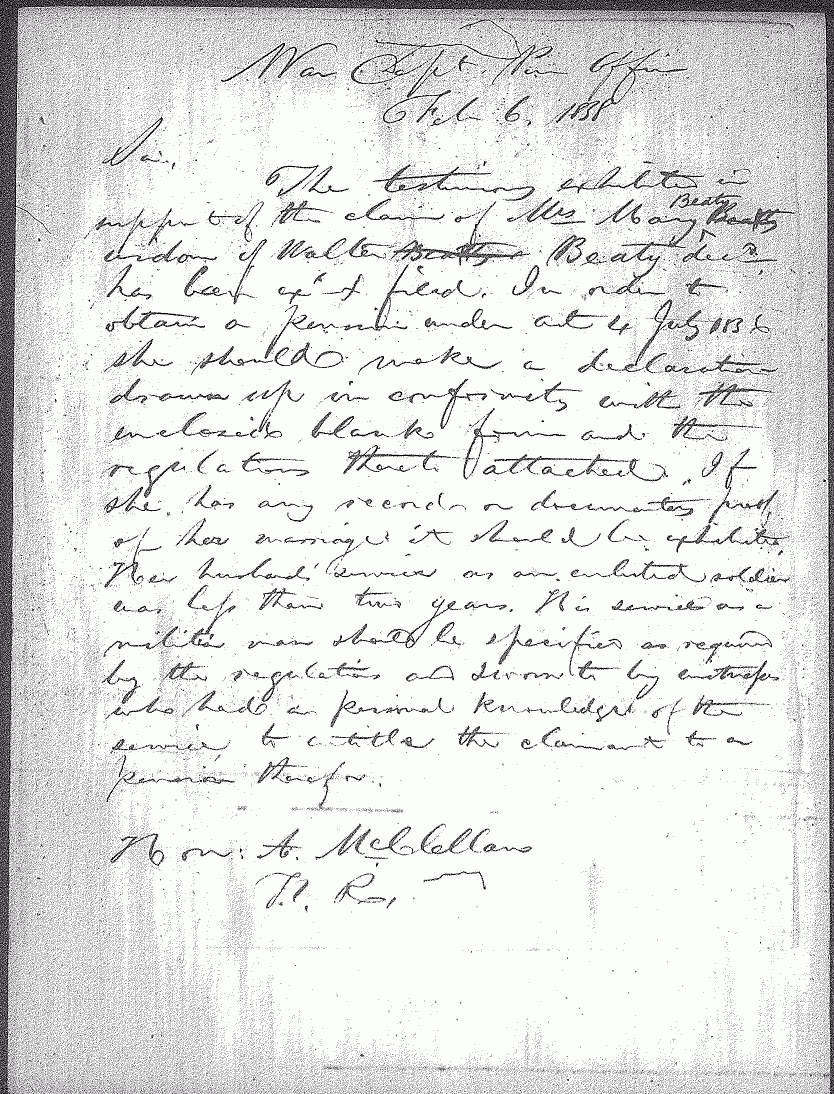 War Dept. Pen Office
Feb 6, 1838
Sir,
The testimony exhibited in
support of the claim of Mrs Mary Beaty Beatty
widow of Walter Beatty Beaty dec'd.
has been ex'd & filed. In order to
obtain a pension under act 4 July 1836
she should make a declaration
drawn up in conformity with the
enclosed blank form and the
regulations thereto attached. If
she has any record or documentary proof
of her marriage it should be exhibited.
Her husband's service as an enlisted soldier
was less than two years. His service as a
militia man should be specified as required
by the regulations and sworn to by witnesses
who had a personal knowledge of the
service, to entitle the claimant to a
pension therefor.
Hon: A. McClellan
H. R.